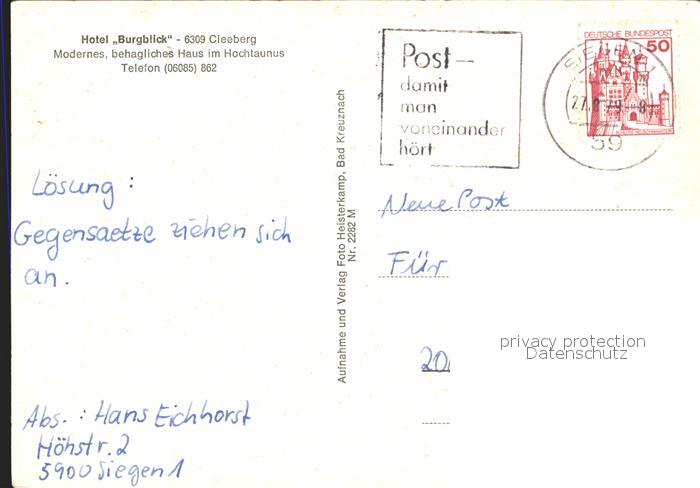 Hotel „Burgblick“ - 6309 Cleeberg
Modernes, behagliches Haus im Hochtaunus
Telefon (06085) 862
Lösung :
Gegensaetze ziehen sich
an.
Abs. : Hans Eichhorst
Höhstr. 2
5900 Siegen 1
Aufnahme und Verlag Foto Heisterkamp, Bad Kreuznach
Nr. 2282 M
Post—
damit
man
voneinander
hört
DEUTSCHE BUNDESPOST
50
SIEGEN 1
27.8.79-8
59
Neue Post
Für
20
privacy protection
Datenschutz